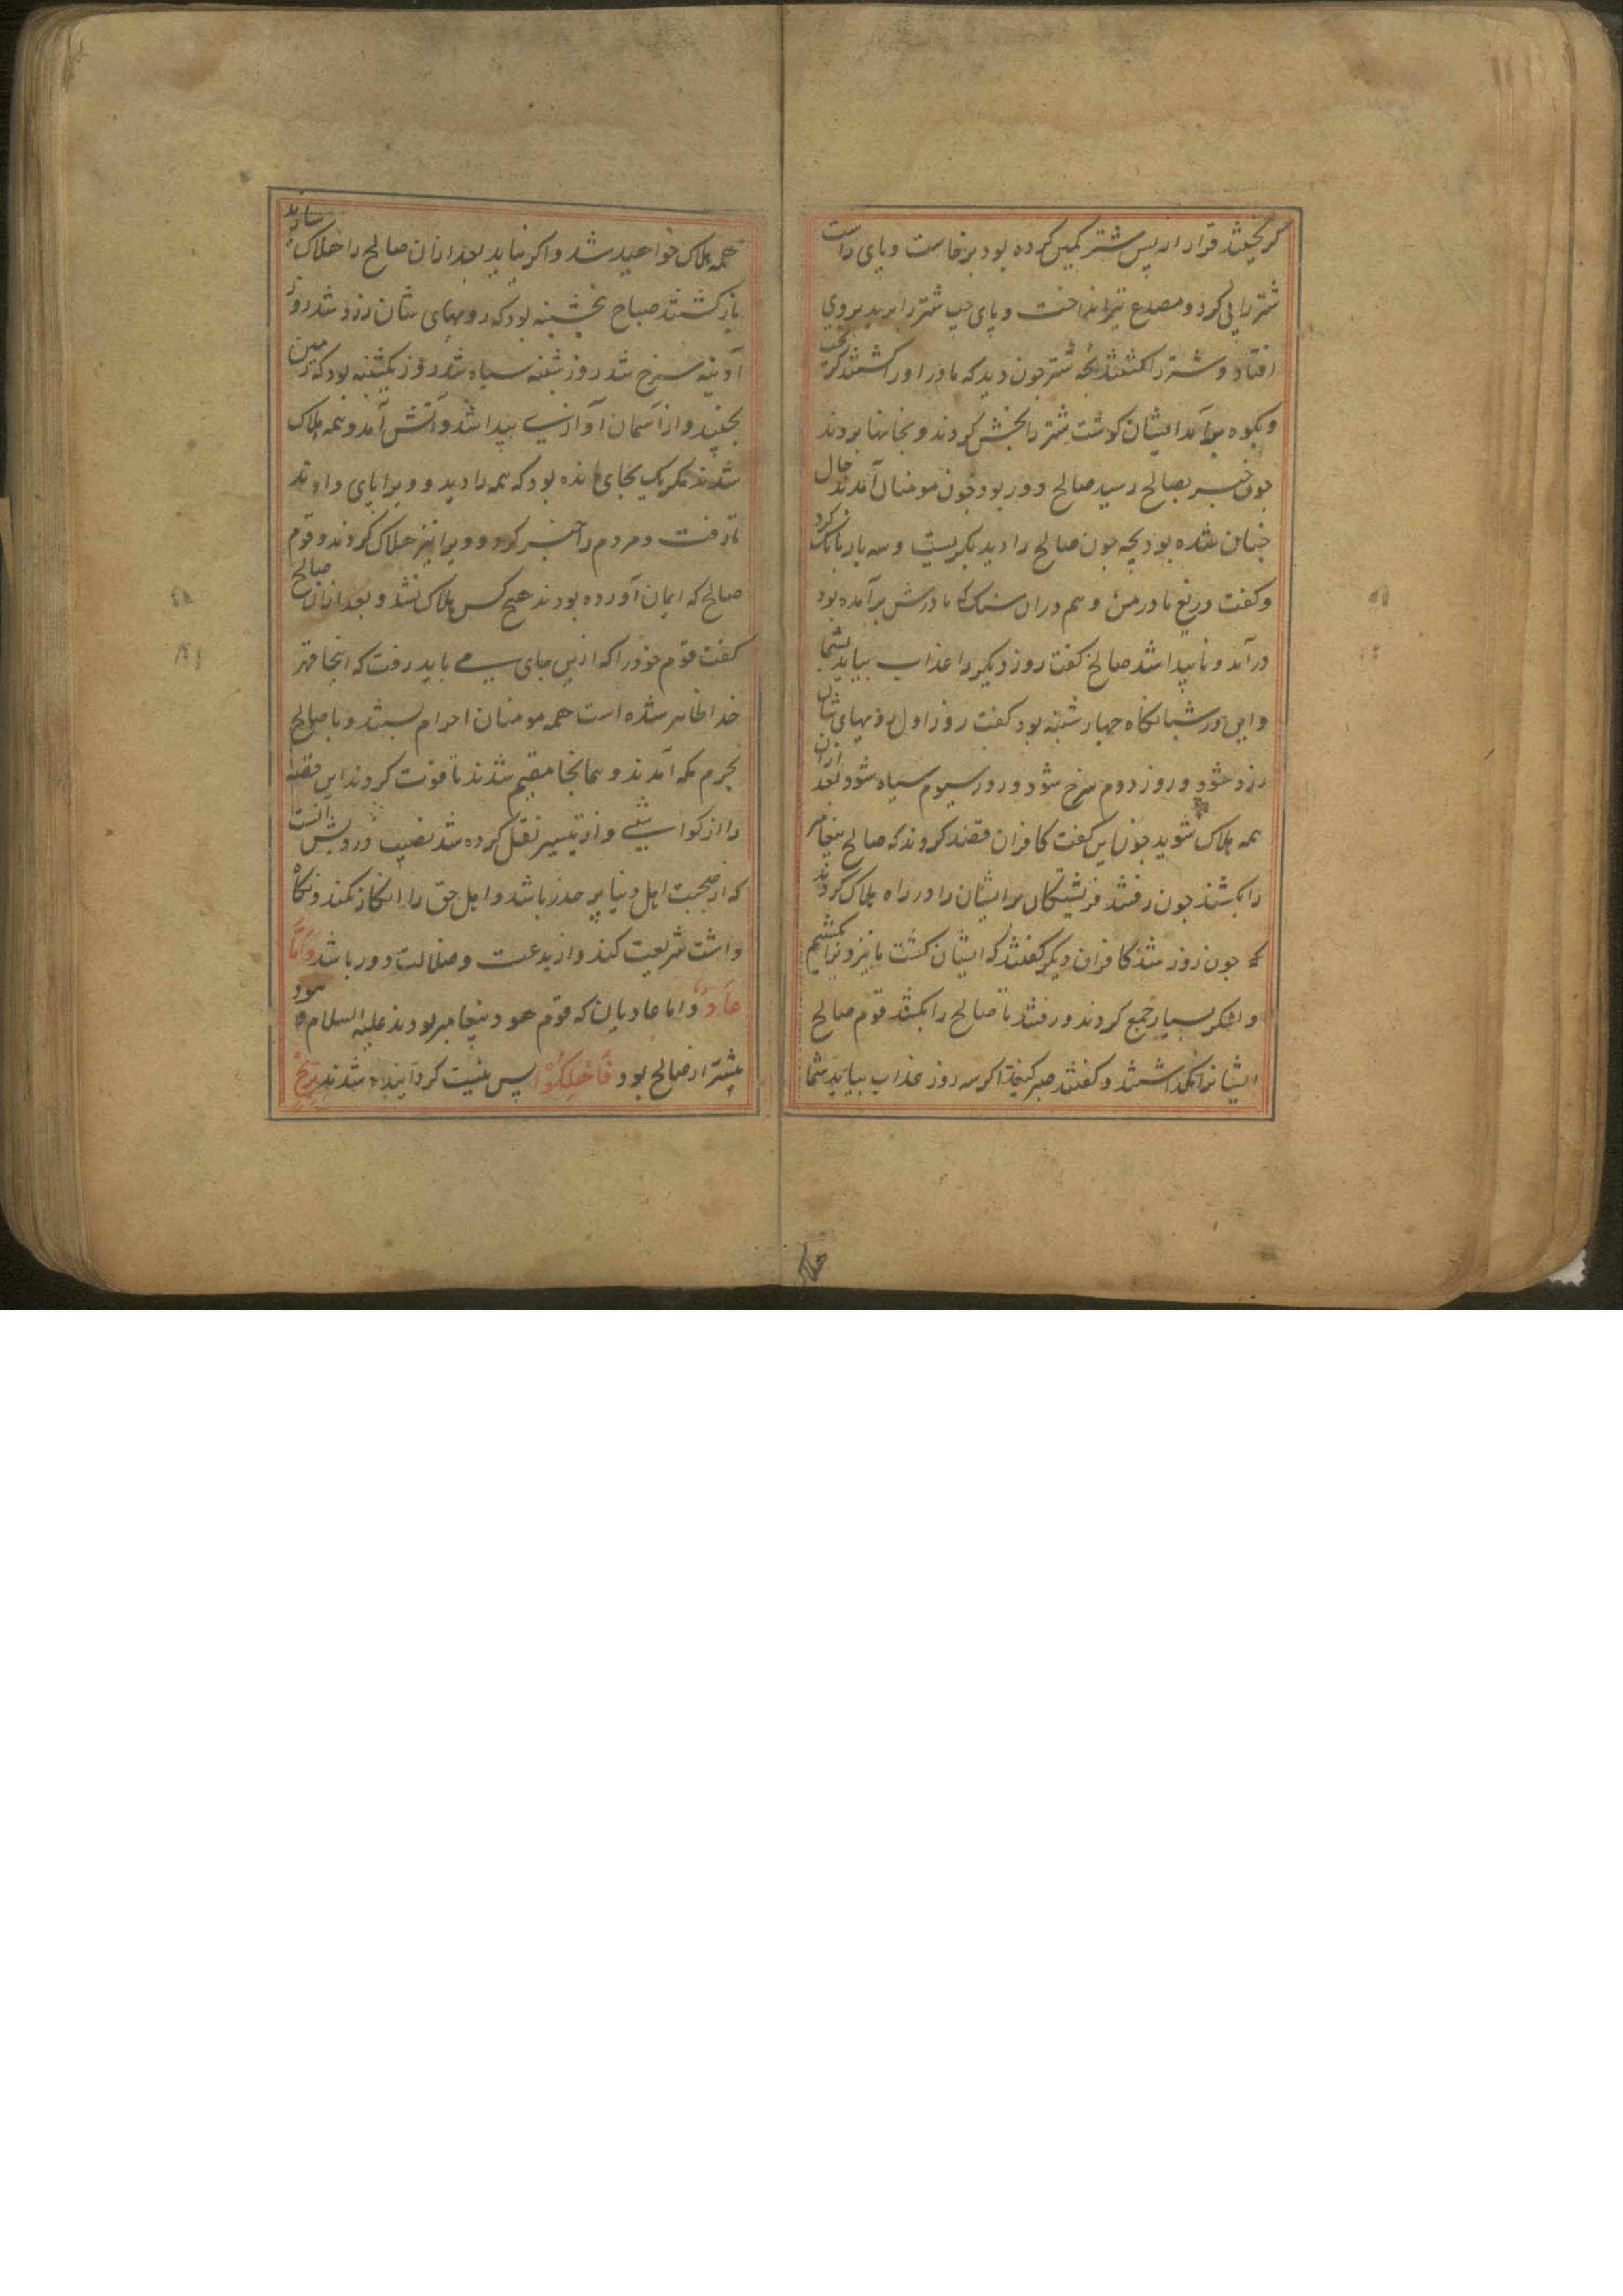 گریختند قدار از پس شتر کمین کرده بود برخاست و پای راست
شتر را پی کرد و مصدع تیر انداخت و پای چپ شتر را برید بروی
افتاد و شتر را کشتند بچه شتر چون دید که مادر او را کشتند گریخت
و بکوه برآمد ایشان گوشت شتر را بخش کردند و بخانها بردند
چون خبر بصالح رسید صالح دور بود چون مومنان آمدند حال
چنان شده بود بچه چون صالح را دید بگریست و سه بار بانگ کرد
و گفت دریغ مادر من و هم دران سنگ که مادرش برآمده بود
درآمد و ناپیدا شد صالح گفت روز دیگر را عذاب بیاید بشما
و این در شبانگاه چهار شنبه بود گفت روز اول رویهای شان
زرد شود و روز دوم سرخ شود و روز سیوم سیاه شود بعد ازان
همه هلاک شوید چون این گفت کافران قصد کردند که صالح پیغامبر
را بکشند چون رفتند فرشتگان مر ایشان را در راه هلاک کردند
چون روز شد کافران دیگر گفتند که ایشان کشت ما نیز ویرا بکشیم
و لشکر بسیار جمع کردند و رفتند تا صالح را بکشند قوم صالح
ایشانرا نگذاشتند و گفتند صبر کنید اگر سه روز عذاب بیاید شما
همه هلاک خواهید شد و اگر نیاید بعد ازان صالح را هلاک سازید
باز گشتند صباح پنجشنبه بود که رویهای شان زرد شد روز
آدینه سرخ شد روز شنبه سیاه شد روز یکشنبه بود که زمین
بجنبید و از آسمان آوازی پیدا شد و آتش آمد و همه هلاک
شدند مگر یک بجای مانده بود که همه را دید و ویرا پای دادند
تا رفت و مردم را خبر کرد و ویرا نیز هلاک کردند و قوم
صالح که ایمان آورده بودند هیچ کس هلاک نشد و بعد ازان صالح
گفت قوم خود را که ازین جای می باید رفت که اینجا قهر
خدا ظاهر شده است همه مومنان احرام بستند و با صالح
بحرم مکه آمدند و همانجا مقیم شدند تا فوت کردند این قصه
را از کواشی و از تیسیر نقل کرده شد نصیب درویش آنست
که از صحبت اهل دنیا پر حذر باشد و اهل حق را انکار نکند و نگاه
داشت شریعت کند و از بدعت و ضلالت دور باشد وَاَمَّا
عَادٌ و اما عادیان که قوم هود پیغامبر بودند علیه السلام هود
پیشتر از صالح بود فَاُهْلِکُوْا پس نیست گردانیده شدند بِرِیْحٍ